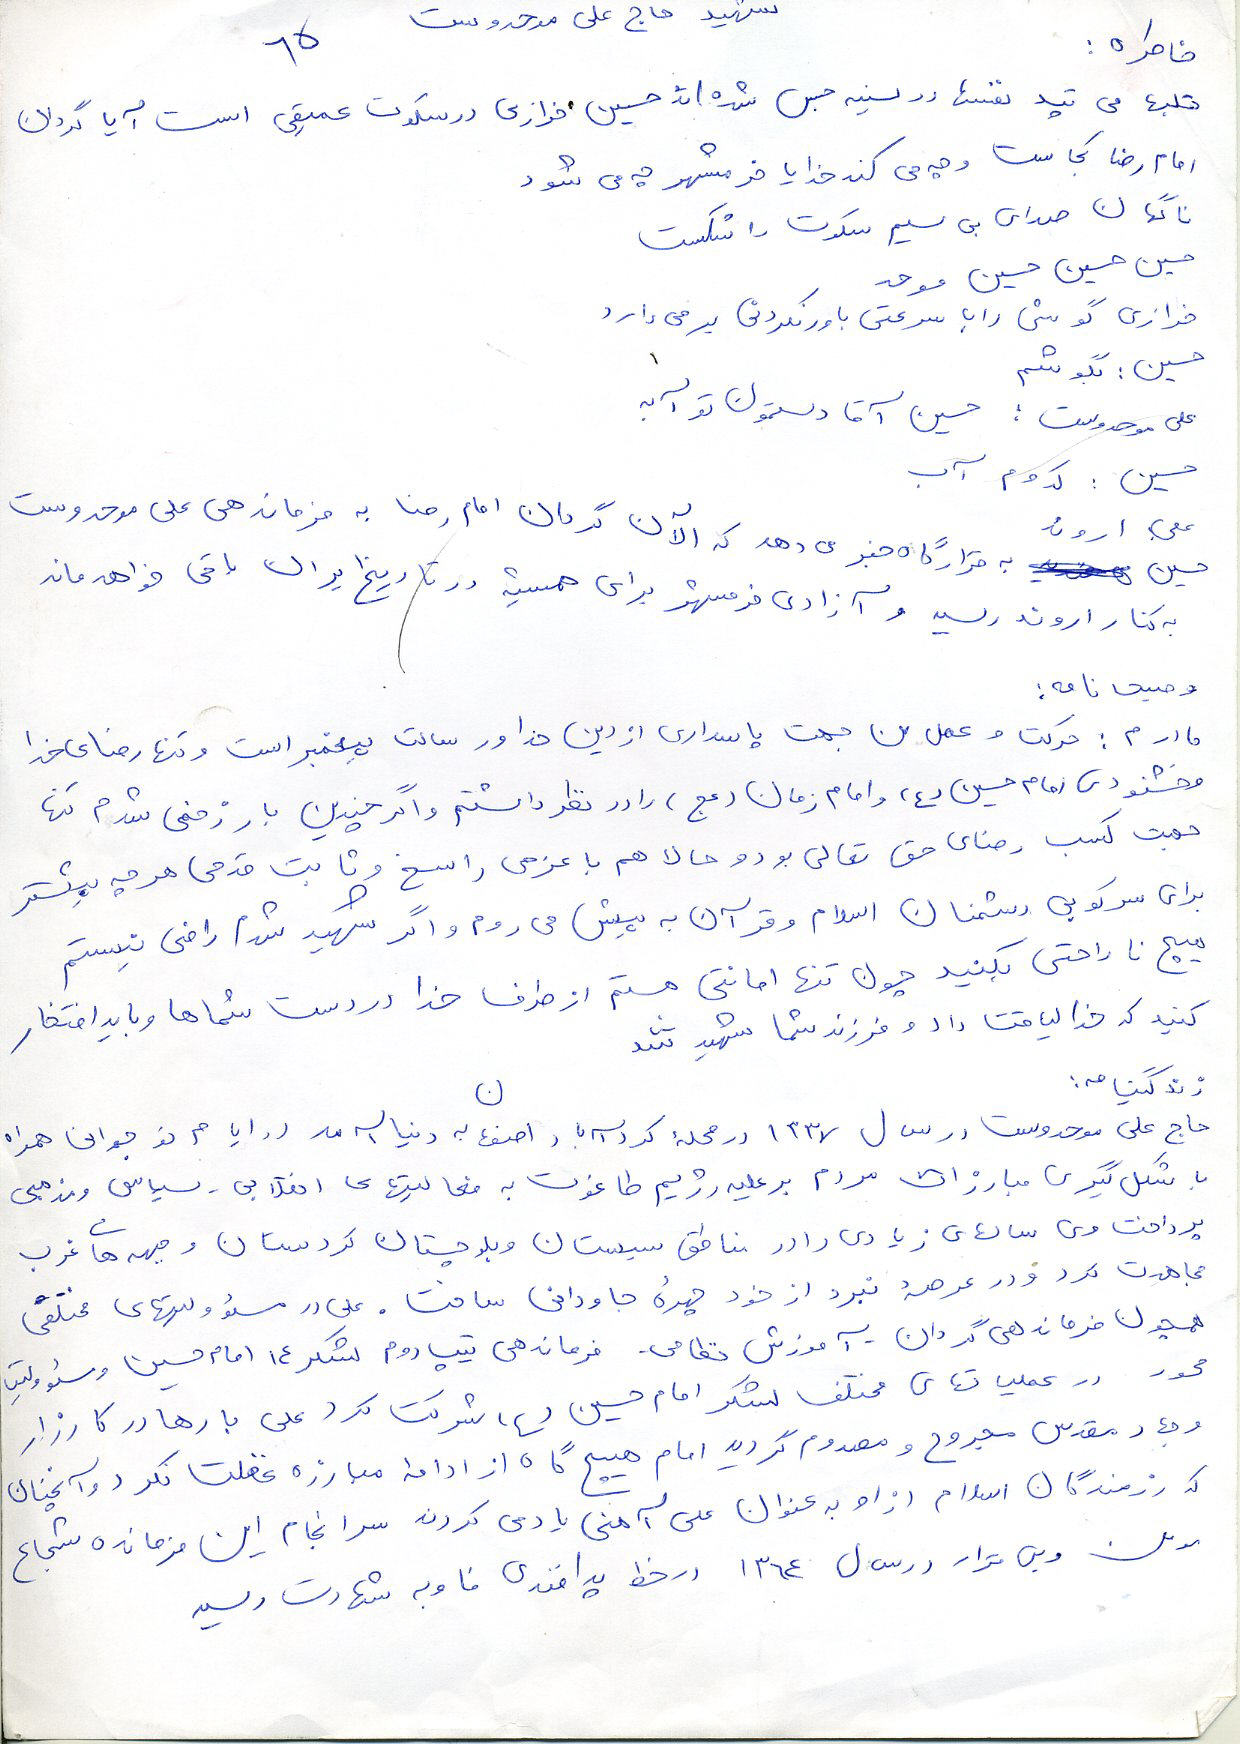 شهید حاج علی موحددوست
٦٥
خاطره :
قلبها می تپد نفسها در سینه حبس شده اند حسین خرازی در سکوت عمیقی است آیا گردان
امام رضا کجاست و چه می کند خدایا خرمشهر چه می شود
ناگهان صدای بی سیم سکوت را شکست
حسین حسین حسین موحد
خرازی گوشی را با سرعتی باورنکردنی بر می دارد
حسین : بگوشم
علی موحددوست : حسین آقا دستمون تو آبه
حسین : کدوم آب
علی اروند
حسین به قرارگاه خبر می دهد که الآن گردان امام رضا به فرماندهی علی موحددوست
به کنار اروند رسید و آزادی خرمشهر برای همیشه در تاریخ ایران باقی خواهد ماند
وصیت نامه :
مادرم : حرکت و عمل من جهت پاسداری از دین خدا و رسالت پیغمبر است و تنها رضای خدا
و خشنودی امام حسین (ع) و امام زمان (عج) را در نظر داشتم و اگر چندین بار زخمی شدم تنها
جهت کسب رضای حق تعالی بود و حالا هم با عزمی راسخ و ثابت قدمی هر چه بیشتر
برای سرکوبی دشمنان اسلام و قرآن به پیش می روم و اگر شهید شدم راضی نیستم
هیچ ناراحتی بکنید چون تنها امانتی هستم از طرف خدا در دست شماها و باید افتخار
کنید که خدا لیاقت داد و فرزند شما شهید شد
زندگینامه :
حاج علی موحددوست در سال ١٣٣٧ در محلهٔ کردآباد اصفهان به دنیا آمد در ایام نوجوانی همراه
با شکل گیری مبارزات مردم بر علیه رژیم طاغوت به فعالیتهای انقلابی - سیاسی و مذهبی
پرداخت وی سالهای زیادی را در مناطق سیستان و بلوچستان کردستان و جبهه های غرب
مجاهدت کرد و در عرصهٔ نبرد از خود چهرهٔ جاودانی ساخت . علی در مسؤولیتهای مختلفی
همچون فرماندهی گردان - آموزش نظامی - فرماندهی تیپ دوم لشکر ١٤ امام حسین و مسئولیت
محور در عملیاتهای مختلف لشکر امام حسین (ع) شرکت کرد علی بارها در کارزار
و جهاد مقدس مجروح و مصدوم گردید امام هیچ گاه از ادامهٔ مبارزه غفلت نکرد و آنچنان
که رزمندگان اسلام از او به عنوان علی آهنی یاد می کردند سرانجام این فرمانده شجاع
مومن و بی قرار در سال ١٣٦٤ در خط پدافندی فاو به شهادت رسید